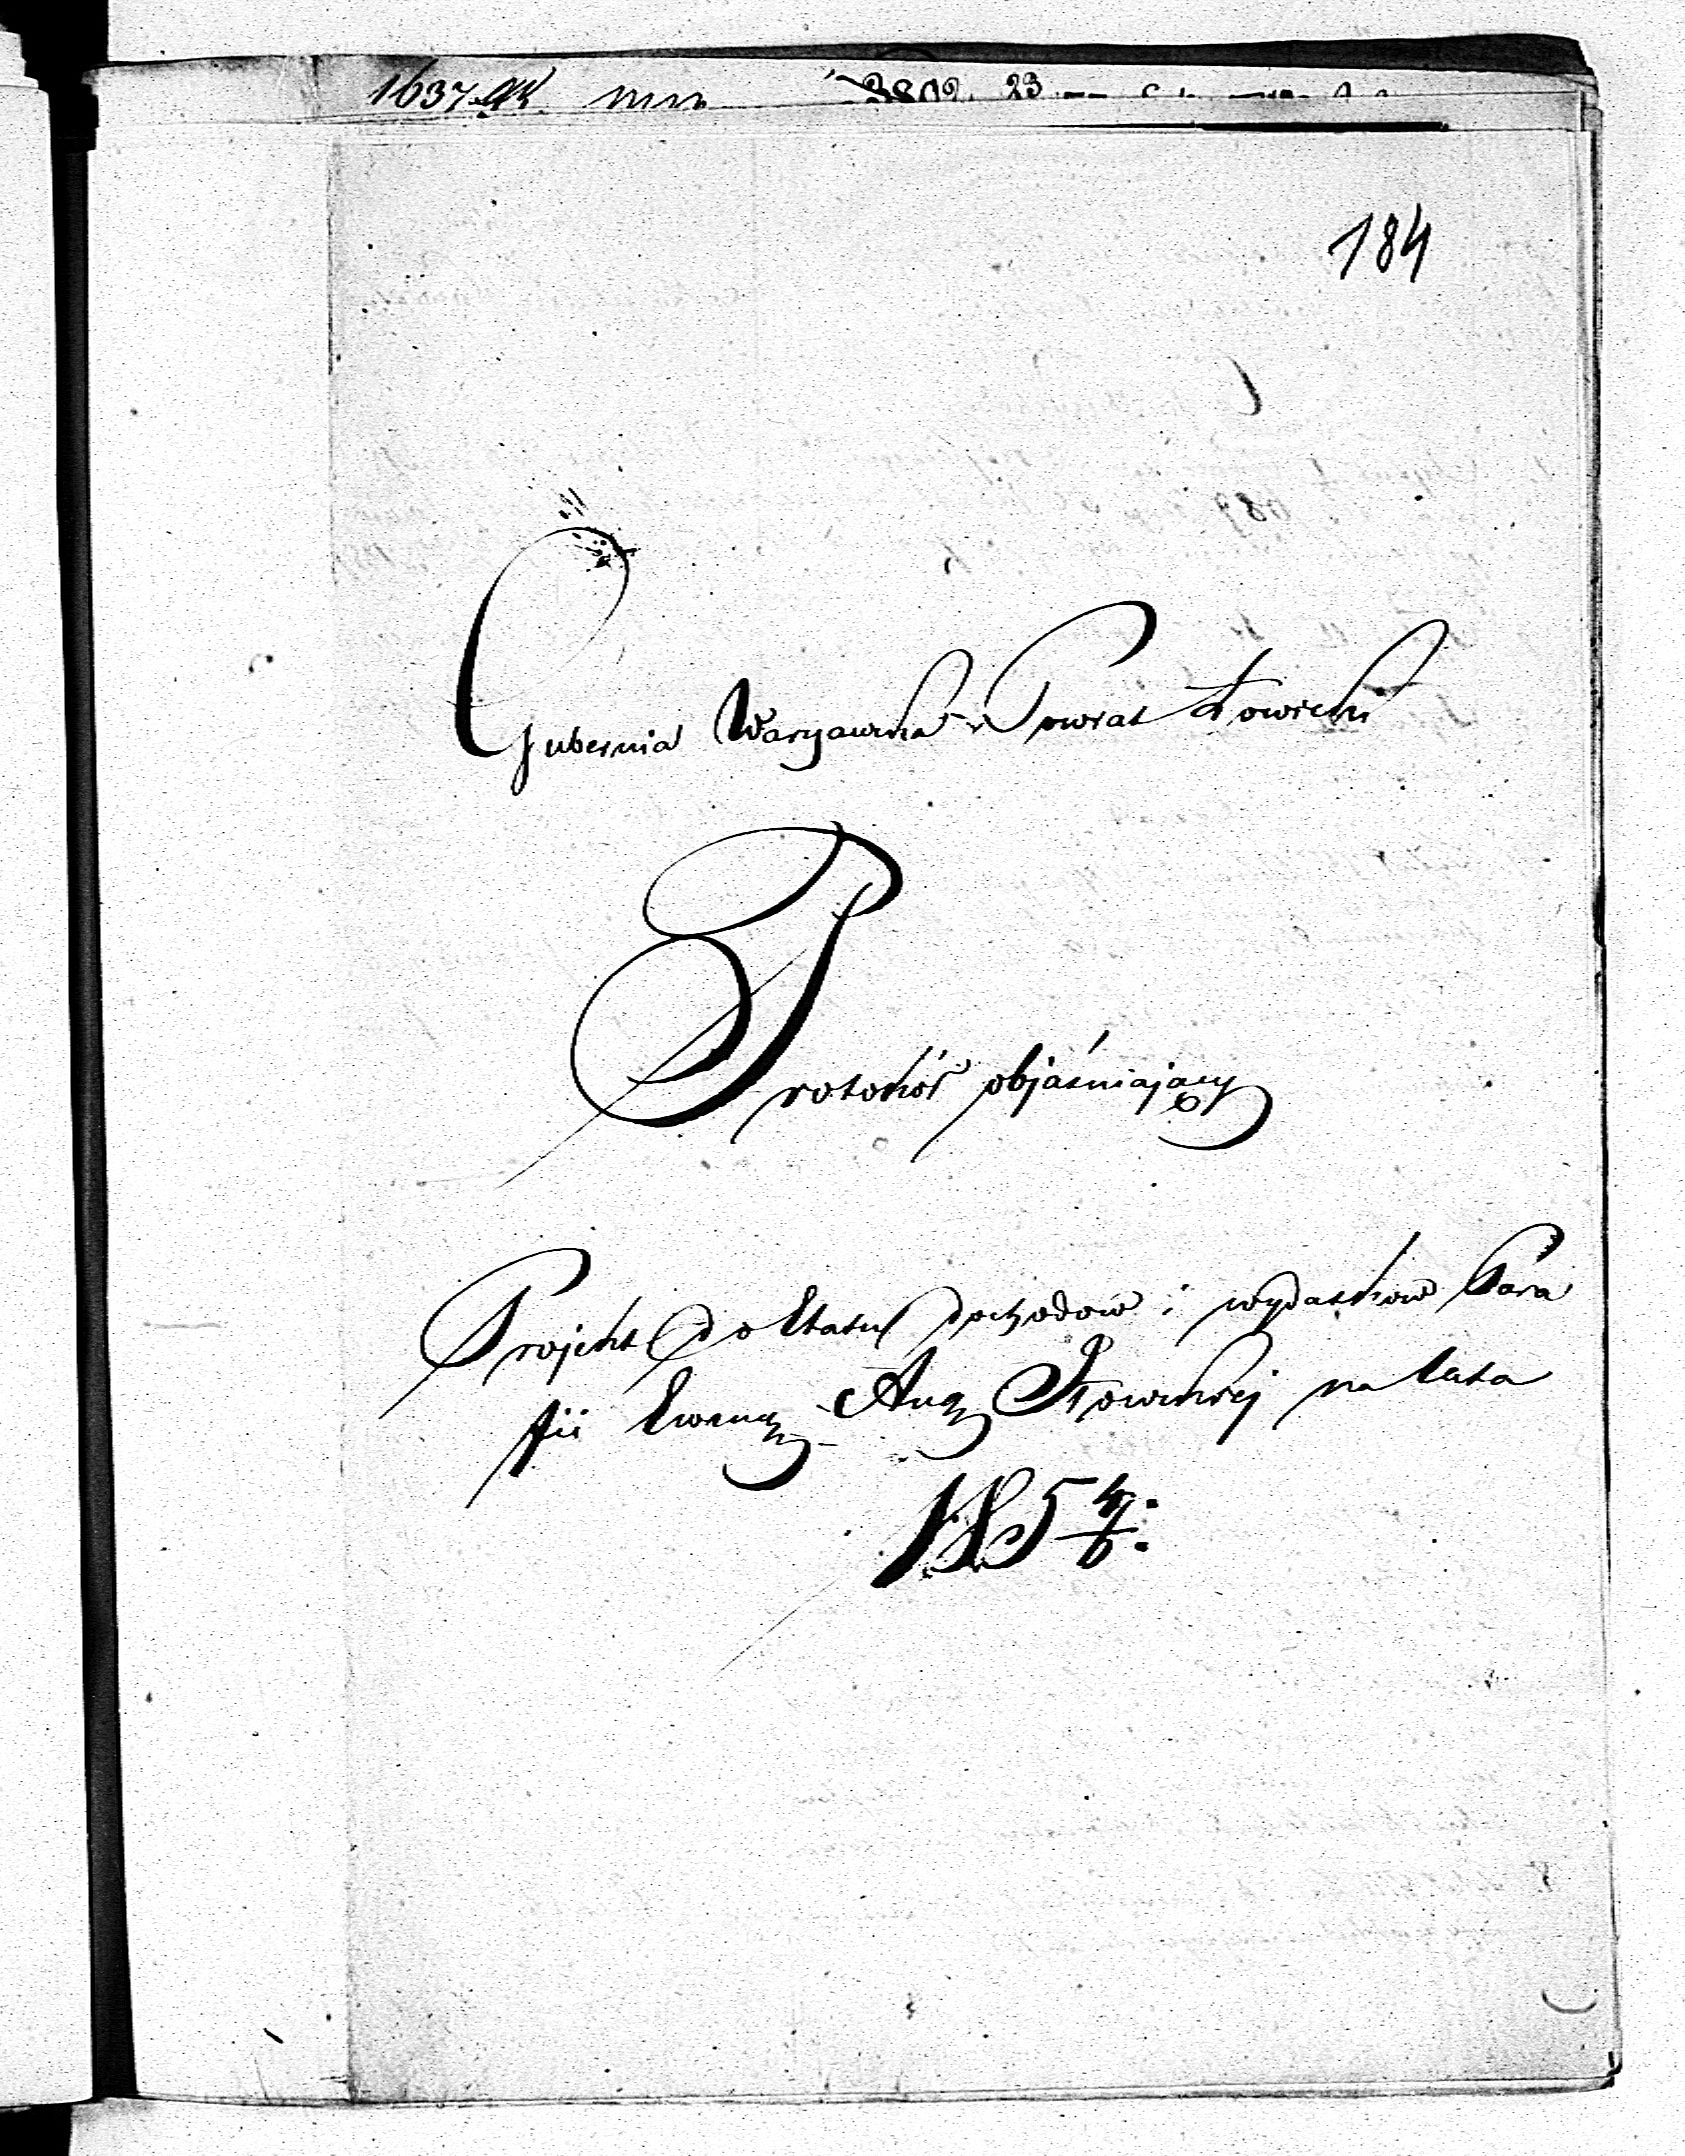 184
Gubernia Warszawska Powiat Łowicki
Protokół objaśniający
Projekt do Etatu dochodów i wydatków Para
fii Ewang. Aug. Iłowskiej na lata
185 4/6.